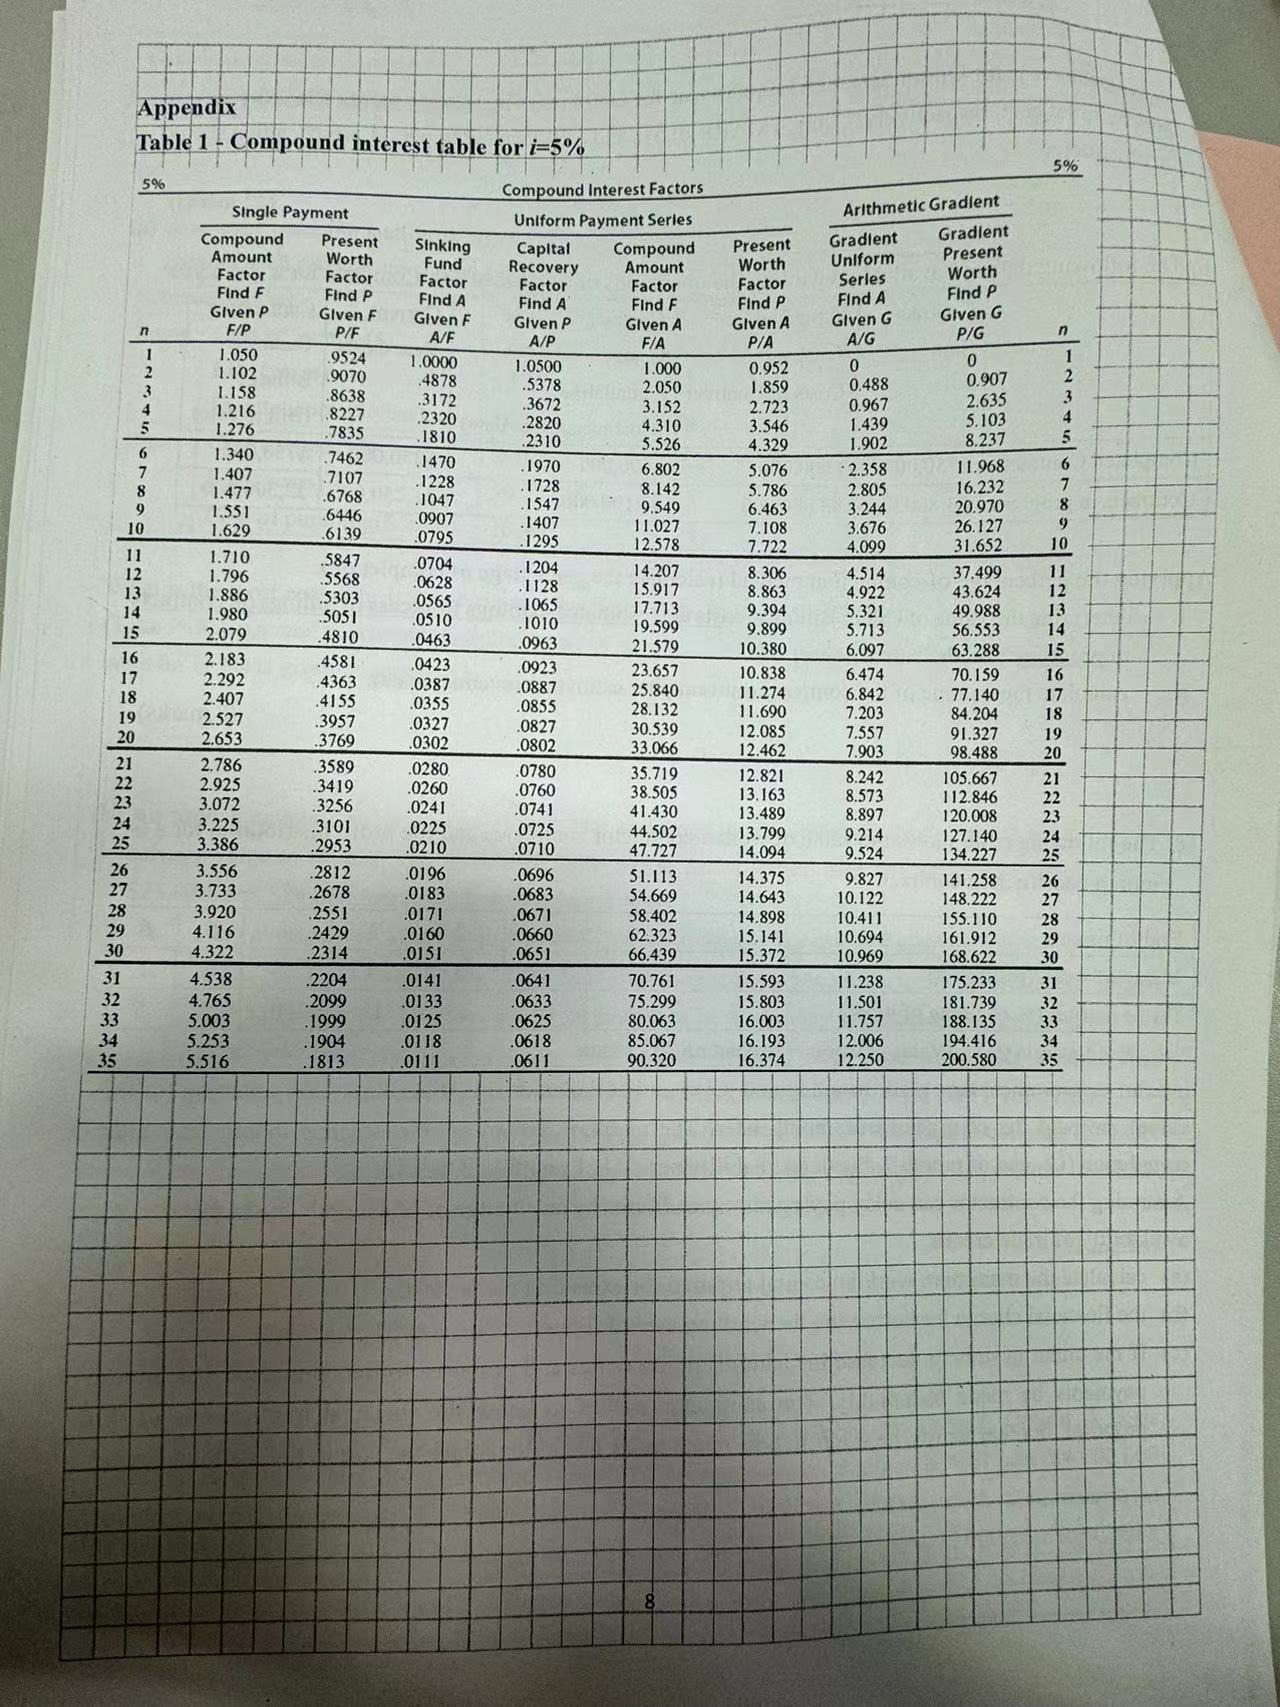 Appendix
Table 1 - Compound interest table for i=5%
5% Compound Interest Factors 5%
Single Payment Uniform Payment Series Arithmetic Gradient
Compound Amount Factor Find F Given P F/P
Present Worth Factor Find P Given F P/F
Sinking Fund Factor Find A Given F A/F
Capital Recovery Factor Find A Given P A/P
Compound Amount Factor Find F Given A F/A
Present Worth Factor Find P Given A P/A
Gradient Uniform Series Find A Given G A/G
Gradient Present Worth Find P Given G P/G
n n
1 1.050 .9524 1.0000 1.0500 1.000 0.952 0 0 1
2 1.102 .9070 .4878 .5378 2.050 1.859 0.488 0.907 2
3 1.158 .8638 .3172 .3672 3.152 2.723 0.967 2.635 3
4 1.216 .8227 .2320 .2820 4.310 3.546 1.439 5.103 4
5 1.276 .7835 .1810 .2310 5.526 4.329 1.902 8.237 5
6 1.340 .7462 .1470 .1970 6.802 5.076 2.358 11.968 6
7 1.407 .7107 .1228 .1728 8.142 5.786 2.805 16.232 7
8 1.477 .6768 .1047 .1547 9.549 6.463 3.244 20.970 8
9 1.551 .6446 .0907 .1407 11.027 7.108 3.676 26.127 9
10 1.629 .6139 .0795 .1295 12.578 7.722 4.099 31.652 10
11 1.710 .5847 .0704 .1204 14.207 8.306 4.514 37.499 11
12 1.796 .5568 .0628 .1128 15.917 8.863 4.922 43.624 12
13 1.886 .5303 .0565 .1065 17.713 9.394 5.321 49.988 13
14 1.980 .5051 .0510 .1010 19.599 9.899 5.713 56.553 14
15 2.079 .4810 .0463 .0963 21.579 10.380 6.097 63.288 15
16 2.183 .4581 .0423 .0923 23.657 10.838 6.474 70.159 16
17 2.292 .4363 .0387 .0887 25.840 11.274 6.842 77.140 17
18 2.407 .4155 .0355 .0855 28.132 11.690 7.203 84.204 18
19 2.527 .3957 .0327 .0827 30.539 12.085 7.557 91.327 19
20 2.653 .3769 .0302 .0802 33.066 12.462 7.903 98.488 20
21 2.786 .3589 .0280 .0780 35.719 12.821 8.242 105.667 21
22 2.925 .3419 .0260 .0760 38.505 13.163 8.573 112.846 22
23 3.072 .3256 .0241 .0741 41.430 13.489 8.897 120.008 23
24 3.225 .3101 .0225 .0725 44.502 13.799 9.214 127.140 24
25 3.386 .2953 .0210 .0710 47.727 14.094 9.524 134.227 25
26 3.556 .2812 .0196 .0696 51.113 14.375 9.827 141.258 26
27 3.733 .2678 .0183 .0683 54.669 14.643 10.122 148.222 27
28 3.920 .2551 .0171 .0671 58.402 14.898 10.411 155.110 28
29 4.116 .2429 .0160 .0660 62.323 15.141 10.694 161.912 29
30 4.322 .2314 .0151 .0651 66.439 15.372 10.969 168.622 30
31 4.538 .2204 .0141 .0641 70.761 15.593 11.238 175.233 31
32 4.765 .2099 .0133 .0633 75.299 15.803 11.501 181.739 32
33 5.003 .1999 .0125 .0625 80.063 16.003 11.757 188.135 33
34 5.253 .1904 .0118 .0618 85.067 16.193 12.006 194.416 34
35 5.516 .1813 .0111 .0611 90.320 16.374 12.250 200.580 35
8